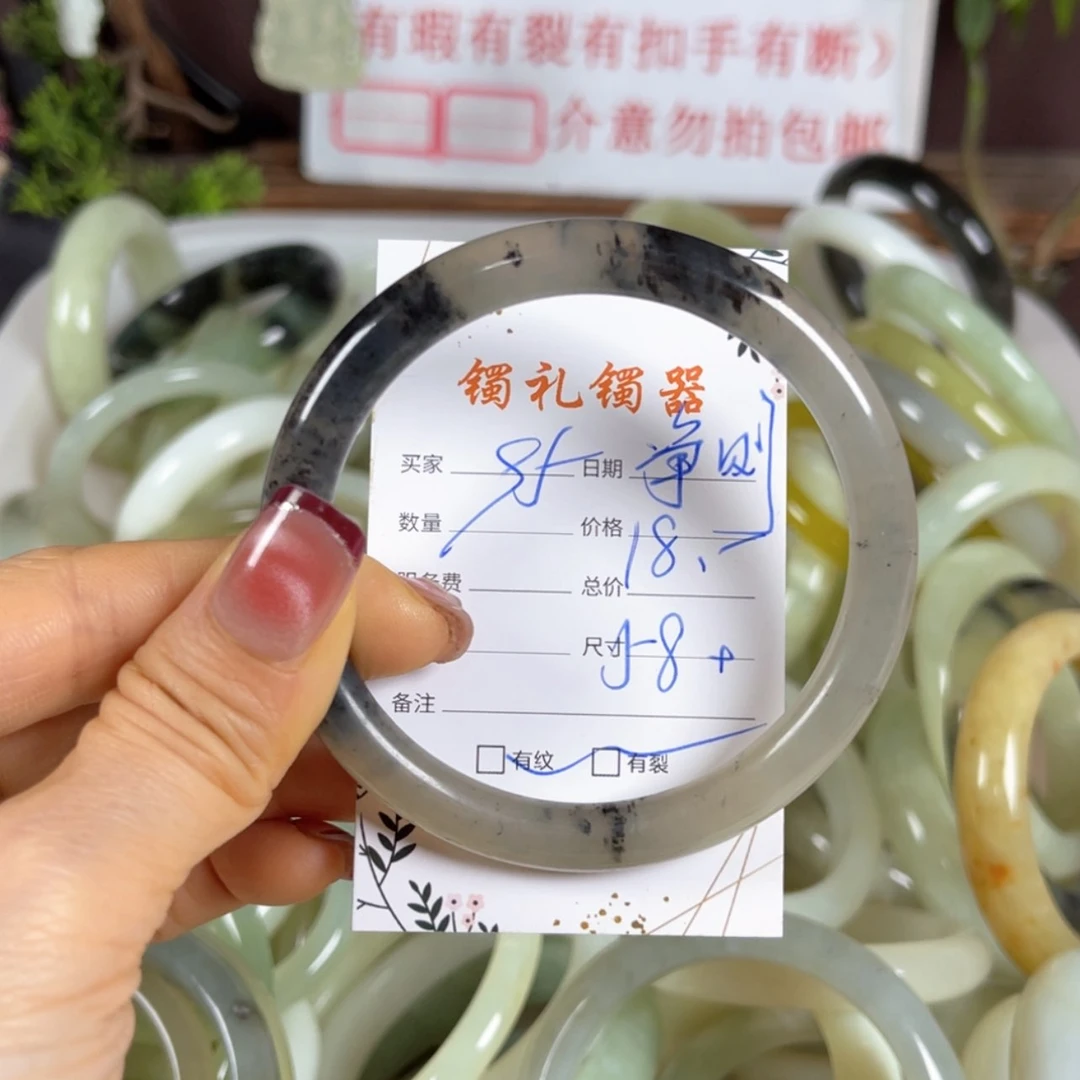 有瑕有裂有扣手有断）
介意勿拍包邮
镯礼镯器
买家 日期
数量 价格 18.
服务费 总价
尺寸 58+
备注
有纹 有裂